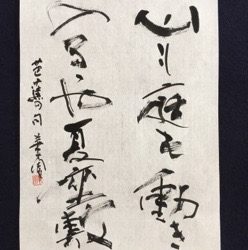 山も庭も動き
入るゝや夏座敷
芭蕉の句